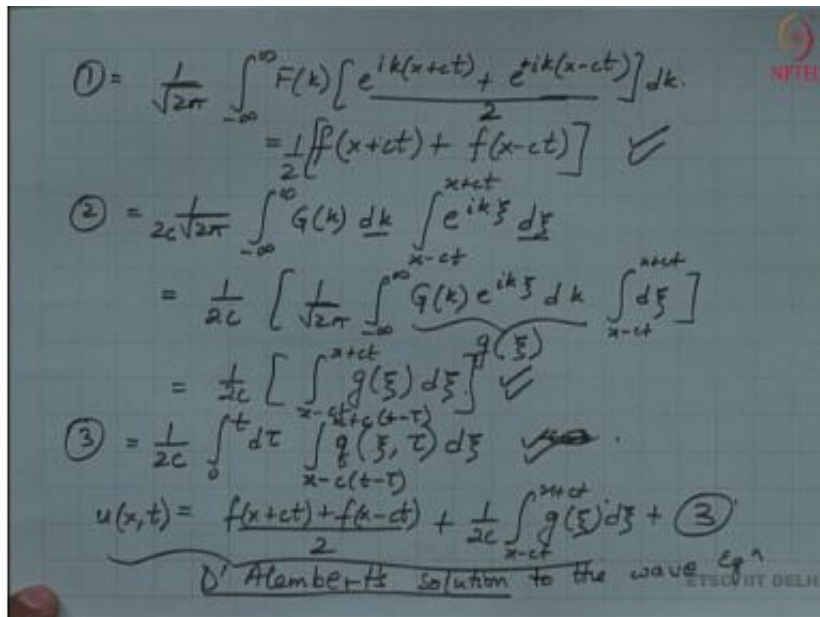 ① = 1/√2π ∫_{-∞}^{∞} F(k) [ (e^{ik(x+ct)} + e^{+ik(x-ct)})/2 ] dk.
NPTEL
= 1/2 [f(x+ct) + f(x-ct)] ✓
② = 1/(2c√2π) ∫_{-∞}^{∞} G(k) dk ∫_{x-ct}^{x+ct} e^{ikξ} dξ
= 1/2c [ 1/√2π ∫_{-∞}^{∞} G(k) e^{ikξ} dk ∫_{x-ct}^{x+ct} dξ ]
g(ξ)
= 1/2c [ ∫_{x-ct}^{x+ct} g(ξ) dξ ] ✓
③ = 1/2c ∫_0^t dτ ∫_{x-c(t-τ)}^{x+c(t-τ)} q(ξ, τ) dξ .
u(x,t) = (f(x+ct) + f(x-ct))/2 + 1/2c ∫_{x-ct}^{x+ct} g(ξ) dξ + ③
D'Alembert's solution to the wave Eqⁿ
ETSC, IIT DELHI